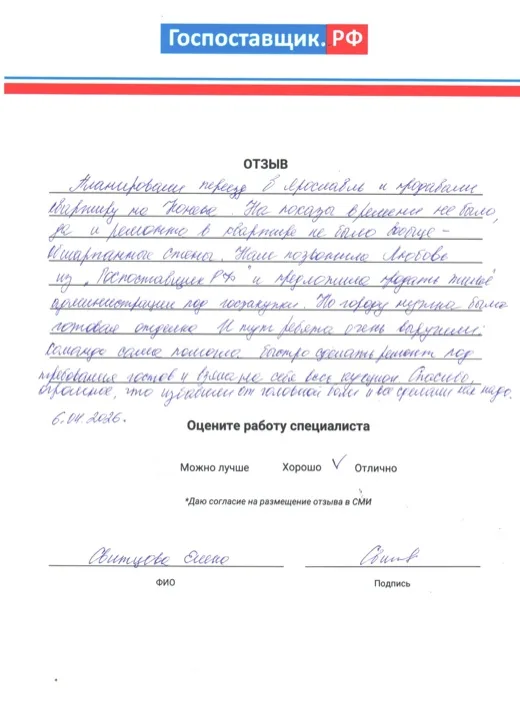 Госпоставщик.РФ
ОТЗЫВ
Планировали переезд в Ярославль и продавали
квартиру на Конева. На показы времени не было,
да и ремонта в квартире не было вообще -
ошарпанная стена. Нам позвонила Любовь
из "Госпоставщик РФ" и предложила продать жильё
администрации под госзакупки. Но городу нужна была
готовая отделка. И тут ребята очень выручили.
Команда сама помогла быстро сделать ремонт под
требования гостов и взяла на себя весь Спасибо
огромное, что избавили от головной боли и все сделали как надо.
6.04.2026.
Оцените работу специалиста
Можно лучше Хорошо ✓ Отлично
*Даю согласие на размещение отзыва в СМИ
Свитцова Елена
ФИО Подпись